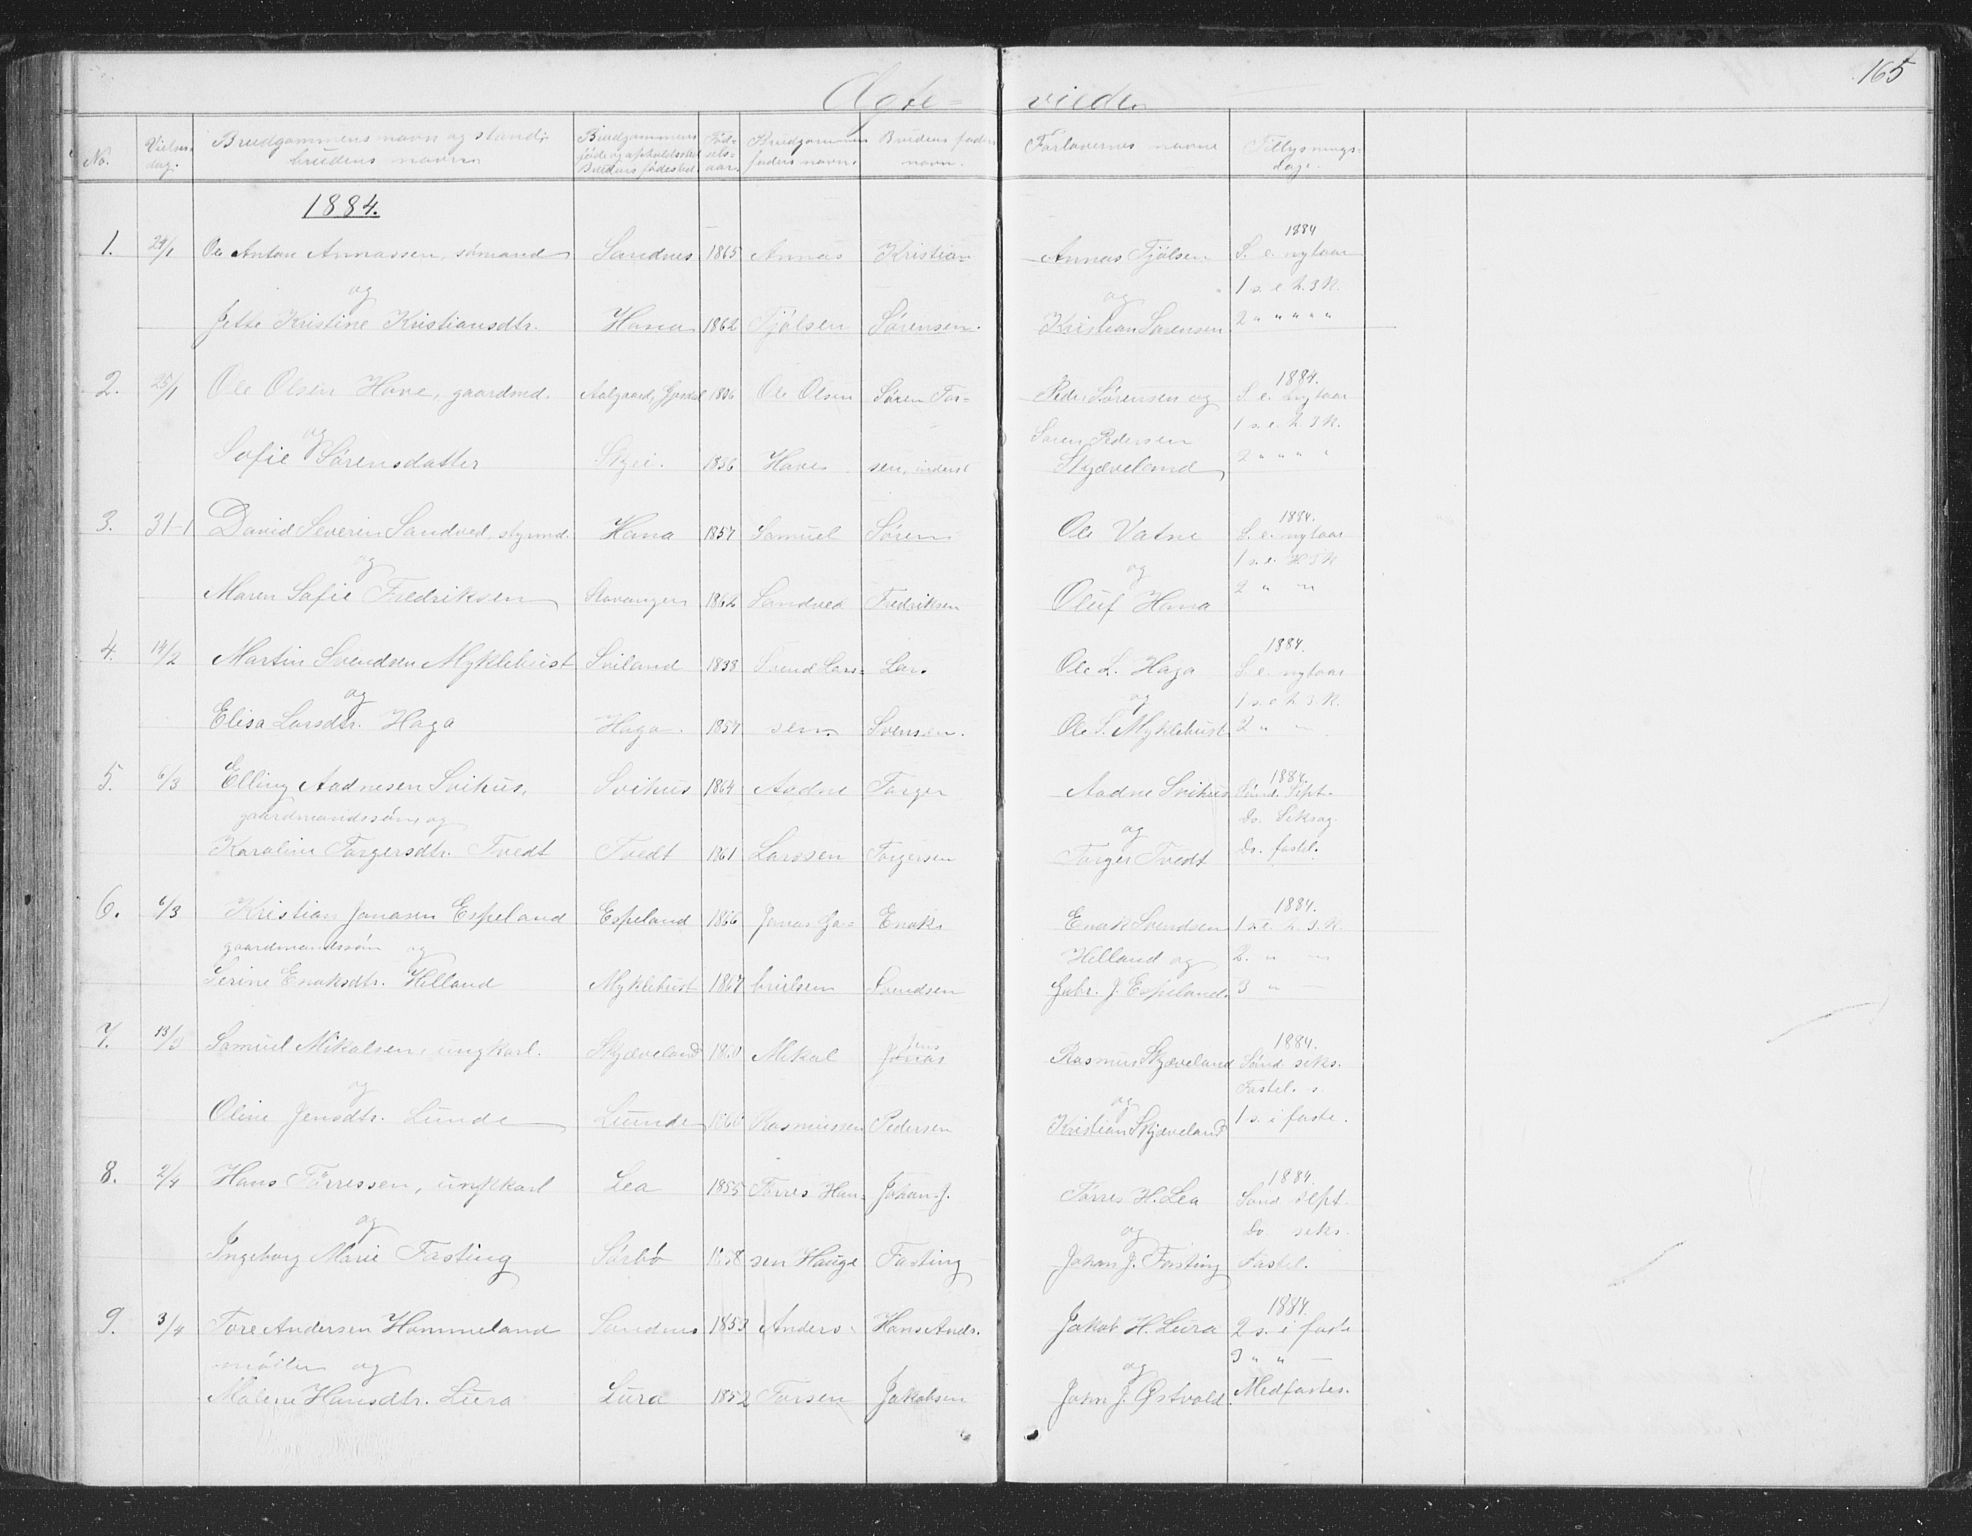 165
Ægte- viede.
No.
Vielses dag.
Brudgommens navn og stand; brudens navn
Brudgommens føde og opholdssted Brudens fødested
Fød- sels- aar.
Brudgommens faders navn.
Brudens faders navn.
Forlovernes navne
Tillysnings- dage.
1884.
1. 29/1 Ole Anton Annassen, sømand Sandnes 1865 Annas Kristian Annas Tjølsen 1884 S. e. nytaar
og og 1 s. e. h. 3 K.
Jette Kristine Kristiansdtr. Hana 1862 Tjølsen Sørensen. Kristian Sørensen 2 " " " "
2. 25/1 Ole Olsen Have, gaardmd. Aalgaard, Gjesdal 1856 Ole Olsen Søren Tor- Peder Sørensen og 1884. S. e. nytaar
og Søren Pedersen 1 s. e. h. 3 K.
Sofie Sørensdatter Skjei. 1856 Have sen, inderst Skjæveland 2 " " " "
3. 31-1 David Severin Sandved, styrmd. Hana 1857 Samuel Søren Ole Vatne 1884. S. e. nytaar
og og 1 s. e. H 3 K
Maren Sofie Fredriksen Stavanger 1862 Sandved Fredriksen Oluf Hana 2 " "
4. 14/2 Martin Svendsen Myklebust Sviland 1838 Svend Lars- Lars Ole L. Haga 1884. S. e. nytaar
og og 1 s. e. h. 3. K.
Elisa Larsdtr. Haga Haga. 1857 sen Svensen. Ole S. Myklebust 2 " "
5. 6/3 Elling Aadnesen Svihus, Svihus 1864 Aadne Torger Aadne Svihus 1884. Sønd. Sept.
gaardmandssøn, og og Do. Seksag.
Karoline Torgersdtr. Tvedt Tvedt 1861 Larssen Torgersen Torger Tvedt Do. fastel.
6. 6/3 Kristian Jonasen Espeland Espeland 1866 Jonas Ga- Enoks Enok Svendsen 1884. 1 s. e. h. 3. K.
gaardmandssøn og Helland og 2. " "
Serine Enoksdtr. Helland Myklebust 1867 brielsen Svendsen Gabr. J. Espeland. 3 "
7. 13/3 Samuel Mikalsen, ungkarl. Skjæveland 1860 Mikal Jens Jonas Rasmus Skjæveland 1884. Sønd seks.
og og Fastel. s.
Oline Jensdtr. Lunde Lunde 1860 Rasmussen Pedersen Kristian Skjæveland 1 s. i faste.
8. 2/4 Hans Tørressen, ungkarl Lea 1855 Tørres Han- Johan J. Tørres H. Lea 1884. Sønd sept.
og og Do seks.
Ingeborg Marie Fasting Sørbø 1858 sen Hauge Fasting Johan J. Fasting Fastel.
9. 3/4 Tore Andersen Hommeland Sandnes 1853 Anders Hans Ands. Jakob H. Lura 1884. 2 s. i faste
møller og og 3 " "
Malene Hansdtr. Lura Lura 1852 Torsen Jakobsen John J. Østvold. Midfastes.